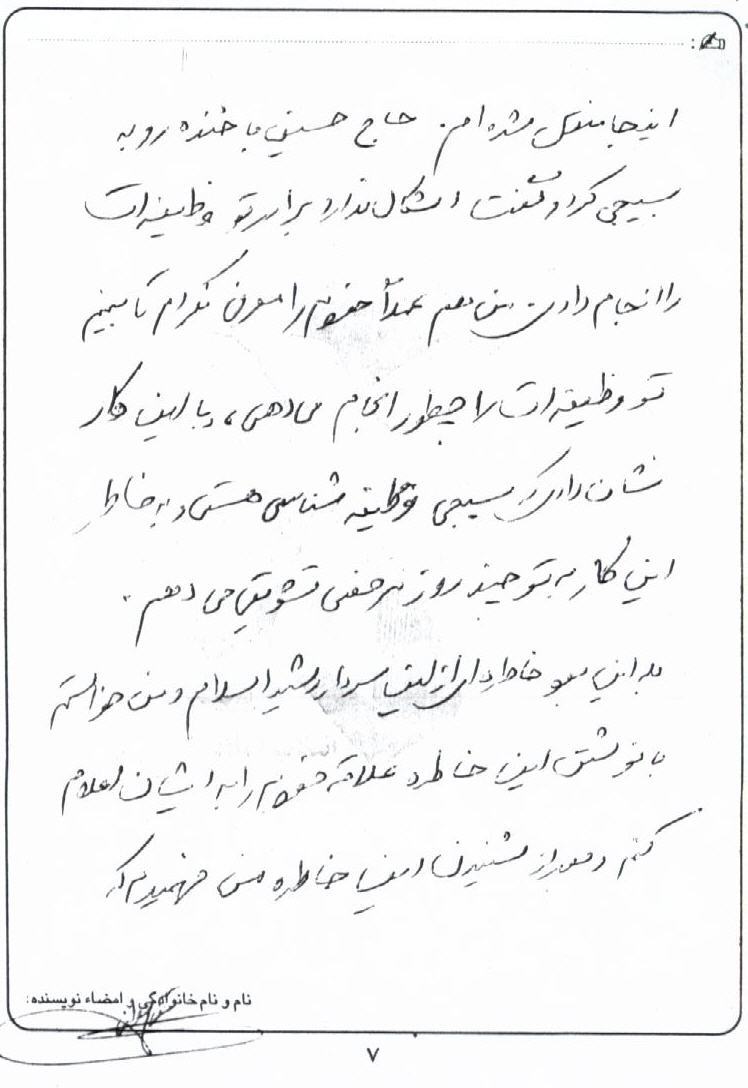 اینجا منتقل شده ام. حاج حسینی با خنده رو به
بسیجی کرد و گفت اشکال ندارد برادر تو وظیفه ات
را انجام دادی. من هم عمداً خودم را معرفی نکردم تا ببینم
تو وظیفه ات را چطور انجام می دهی، با این کار
نشان دادی که بسیجی وظیفه شناسی هستی و به خاطر
این کار به تو چند روز مرخصی تشویقی می دهم.
بله این بود خاطره ای از این سردار رشید اسلام و من خواستم
با نوشتن این خاطره علاقه خودم را به ایشان اعلام
کنم و بعد از شنیدن این خاطره من فهمیدم که
نام و نام خانوادگی و امضاء نویسنده:
۷